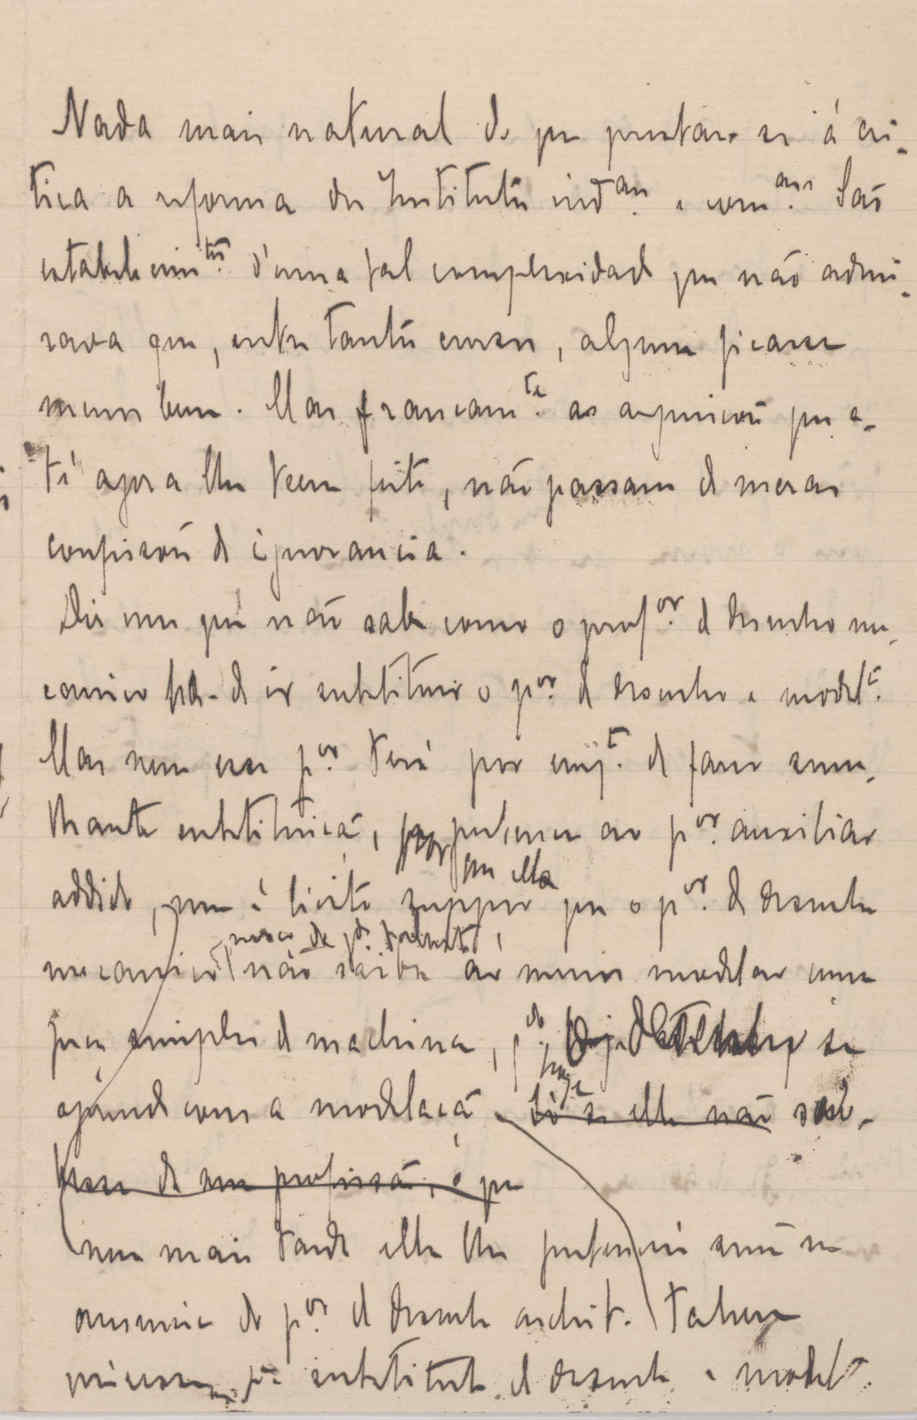 Nada mais natural do que prestar-se á cri-
tica a reforma dos Institutos ind.aes e com.aes São
estabelecim.tos d'uma tal complexidade que não admi-
rava que, entre tantos cursos, algum ficasse
menos bem. Mas francam.te as arguições que a-
té agora lhe teem feito, não passam de meras
confissões de ignorancia.
Diz um que não sabe como o prof.or de desenho me-
canico ha-de ir substituir o p.or de desenho e model.
Mas nem esse p.or terá por de fazer seme-
lhante substituição, pertence ao p.or auxiliar
addido, nem é licito suppor que o p.or de desenho
que elle
mecanico não saiba ao menos modelar uma
peça simples de machina, se
aprende com a modelação. Só se elle não sou-
besse da sua profissão, é que
nem mais tarde elle lhe pertencerá senão na
ausencia do p.or de desenho archit. Talvez
substituto de desenho e model.